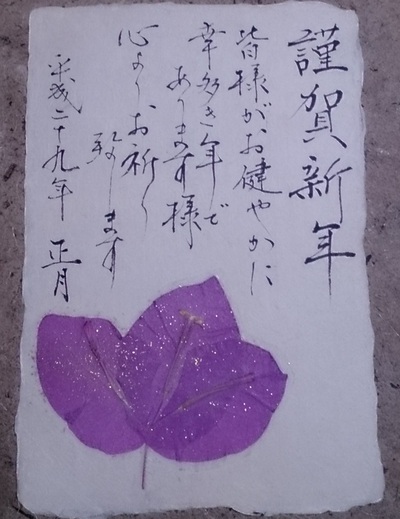 謹賀新年
皆様がお健やかに
幸多き年で
あります様
心よりお祈り
致します
平成二十九年 正月